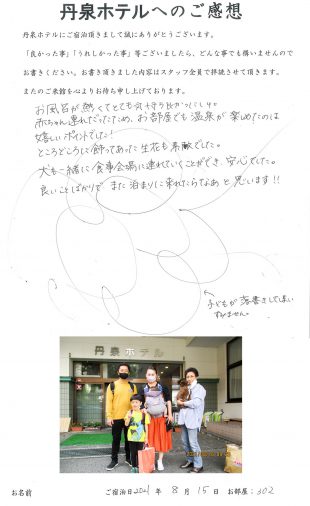 丹泉ホテルへのご感想
丹泉ホテルにご宿泊頂きまして誠にありがとうございます。
「良かった事」「うれしかった事」等ございましたら、どんな事でも構いませんので
お書きください。お書き頂きました内容はスタッフ全員で拝読させて頂きます。
またのご来館を心よりお待ち申し上げております。
お風呂が熱くてとても気持ち良かったです
赤ちゃん連れだったため、お部屋でも温泉が楽めたのは
嬉しいポイントでした!
ところどころに飾ってあった生花も素敵でした。
犬も一緒に食事会場に連れていくことができ、安心でした。
良いことばかりで また泊まりに来れたらなあと思います!!
子どもが落書きしてしまい
すみません。
丹泉ホテル
お名前 ご宿泊日2021年 8月 15日 お部屋:302